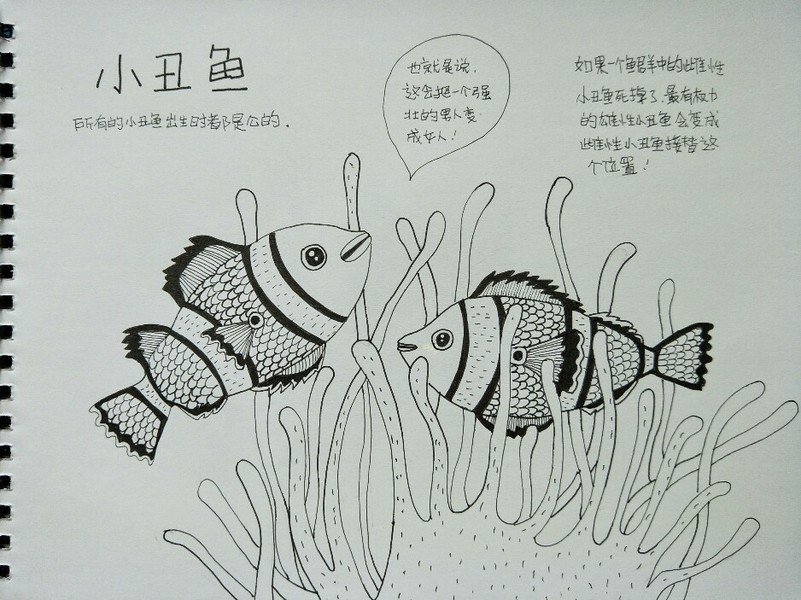 小丑鱼
所有的小丑鱼出生时都是公的.
也就是说,
这会把一个强
壮的男人变
成女人!
如果一个鱼群中的雌性
小丑鱼死掉了,最有权力
的雄性小丑鱼会变成
雌性小丑鱼接替这
个位置!